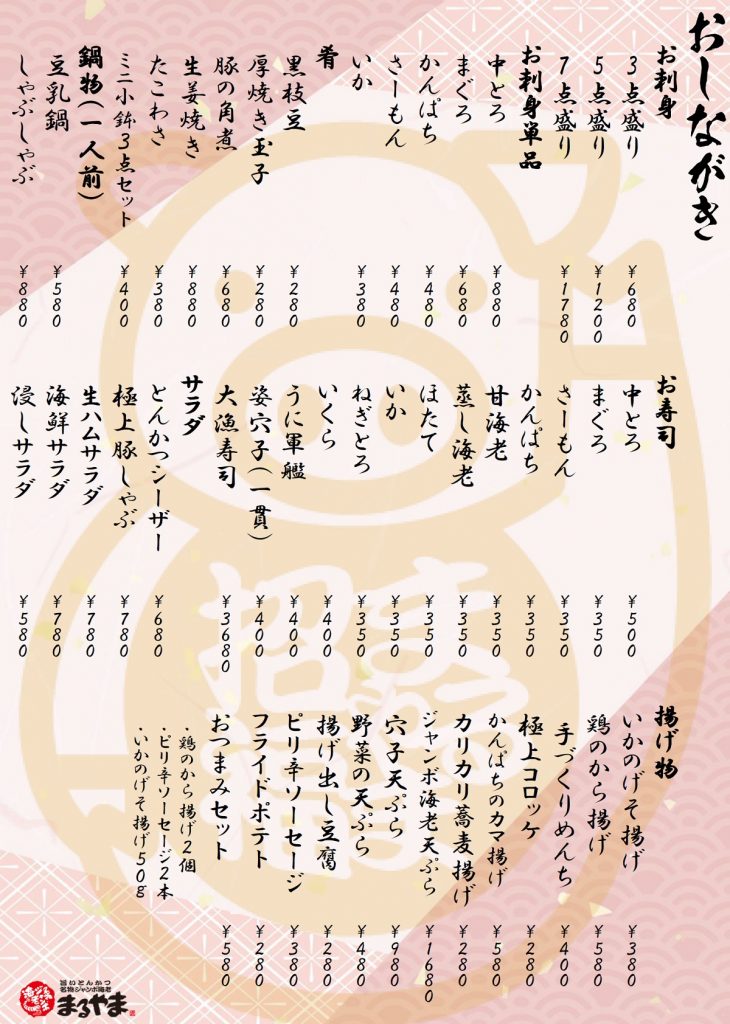 おしながき
お刺身
3点盛り ¥680
5点盛り ¥1200
7点盛り ¥1780
お刺身単品
中とろ ¥880
まぐろ ¥680
かんぱち ¥480
さーもん ¥480
いか ¥380
肴
黒枝豆 ¥280
厚焼き玉子 ¥280
豚の角煮 ¥680
生姜焼き ¥880
たこわさ ¥380
ミニ小鉢3点セット ¥400
鍋物(一人前)
豆乳鍋 ¥580
しゃぶしゃぶ ¥880
お寿司
中とろ ¥500
まぐろ ¥350
さーもん ¥350
かんぱち ¥350
甘海老 ¥350
蒸し海老 ¥350
ほたて ¥350
いか ¥350
ねぎとろ ¥350
いくら ¥400
うに軍艦 ¥400
姿穴子(一貫) ¥400
大漁寿司 ¥3680
サラダ
とんかつシーザー ¥680
極上豚しゃぶ ¥780
生ハムサラダ ¥780
海鮮サラダ ¥780
浸しサラダ ¥580
揚げ物
いかのげそ揚げ ¥380
鶏のから揚げ ¥580
手づくりめんち ¥400
極上コロッケ ¥280
かんぱちのカマ揚げ ¥580
カリカリ蕎麦揚げ ¥280
ジャンボ海老天ぷら ¥1680
穴子天ぷら ¥980
野菜の天ぷら ¥480
揚げ出し豆腐 ¥280
ピリ辛ソーセージ ¥380
フライドポテト ¥280
おつまみセット ¥580
・鶏のから揚げ2個
・ピリ辛ソーセージ2本
・いかのげそ揚げ50g
旨いとんかつ
名物ジャンボ海老
まるやま